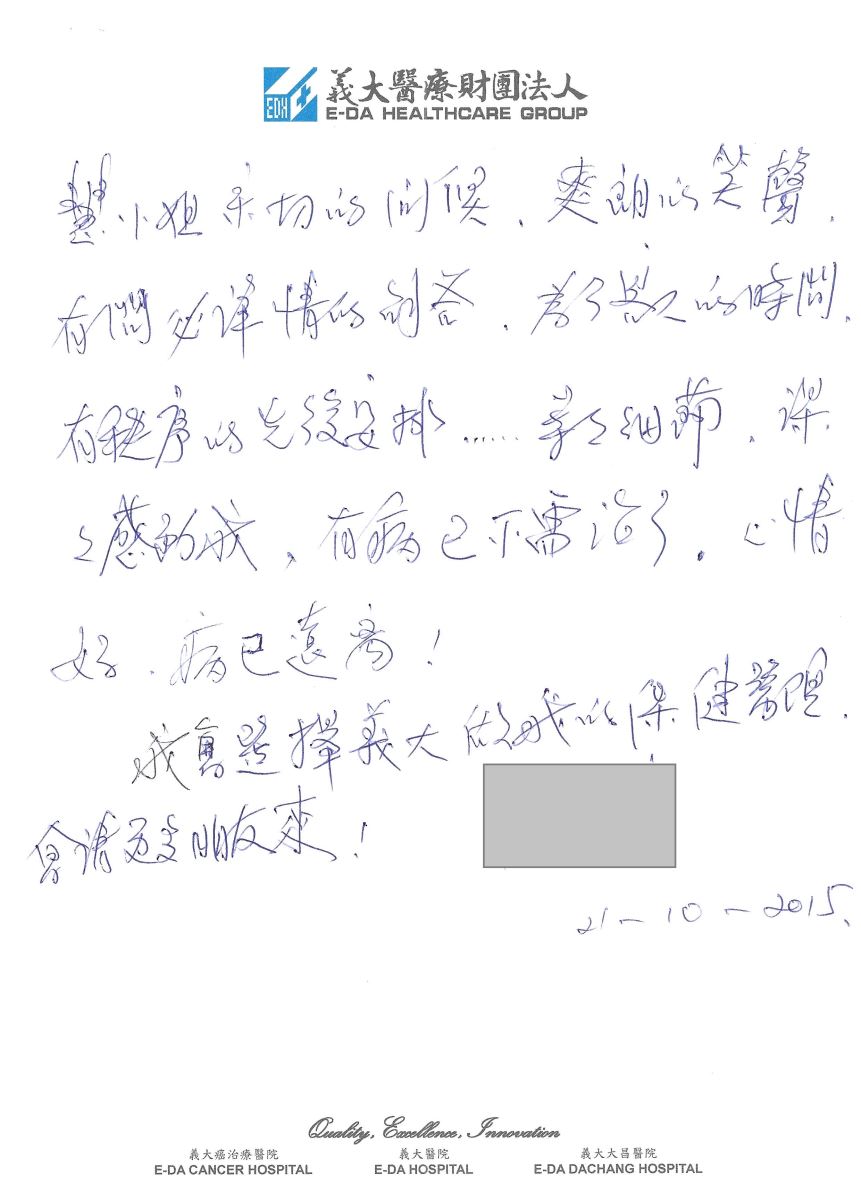 義大醫療財團法人
E-DA HEALTHCARE GROUP
慧小姐親切的問候，爽朗的笑聲，
有問必詳情的回答，為客人的時間，
有秩序的先後安排……等細節，深
深感動我，有病已不需治了，心情
好，病已遠离！
我會選擇義大做我的保健管理，
會請更多朋友來！
21-10-2015
Quality, Excellence, Innovation
義大癌治療醫院 義大醫院 義大大昌醫院
E-DA CANCER HOSPITAL E-DA HOSPITAL E-DA DACHANG HOSPITAL